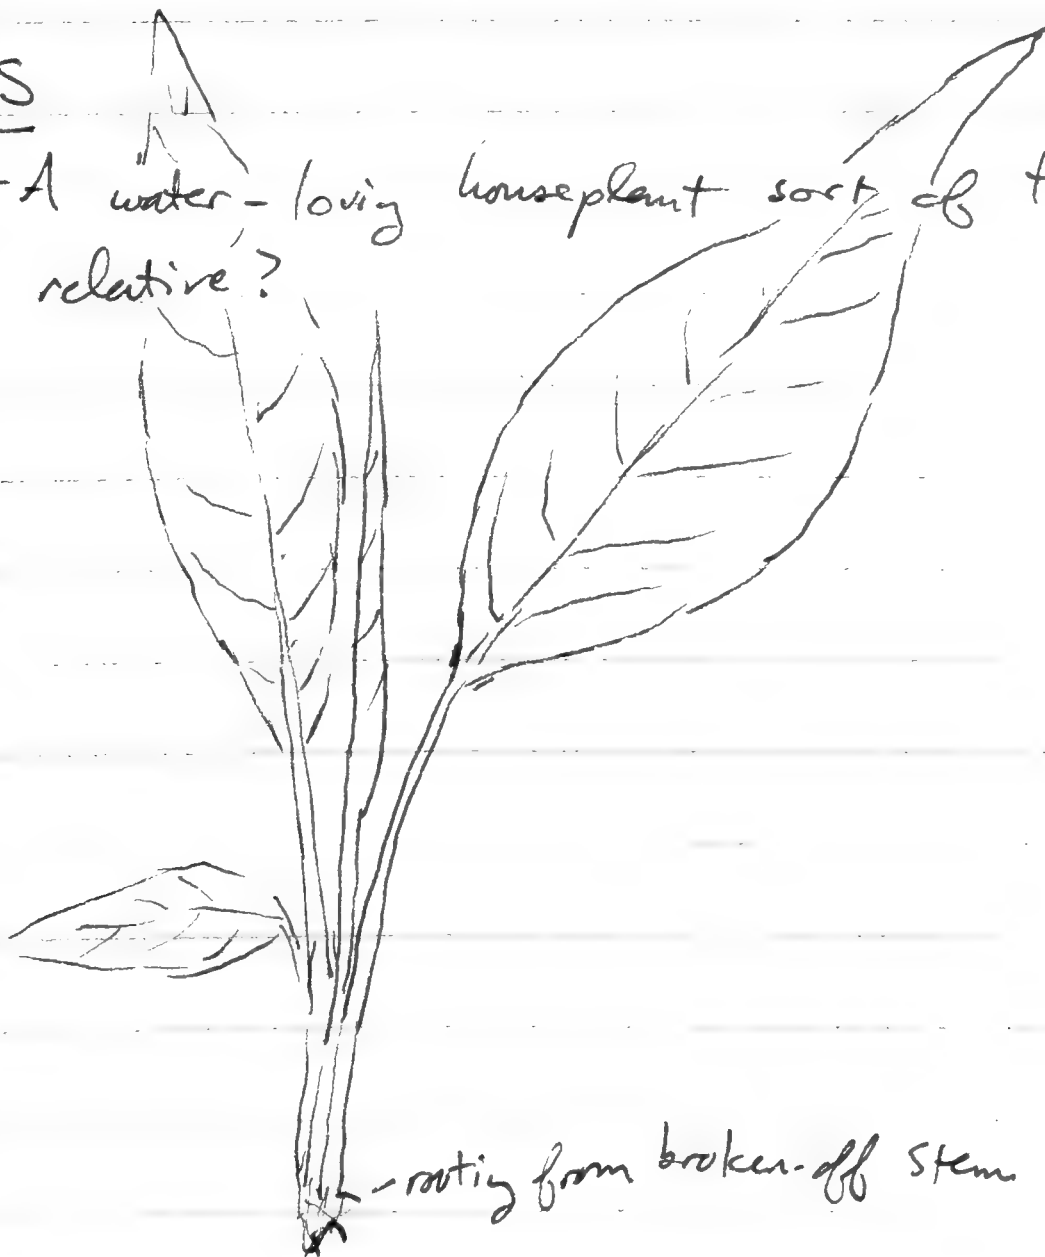 S
-A water-loving houseplant sort of t
relative?
-rooting from broken-off stem